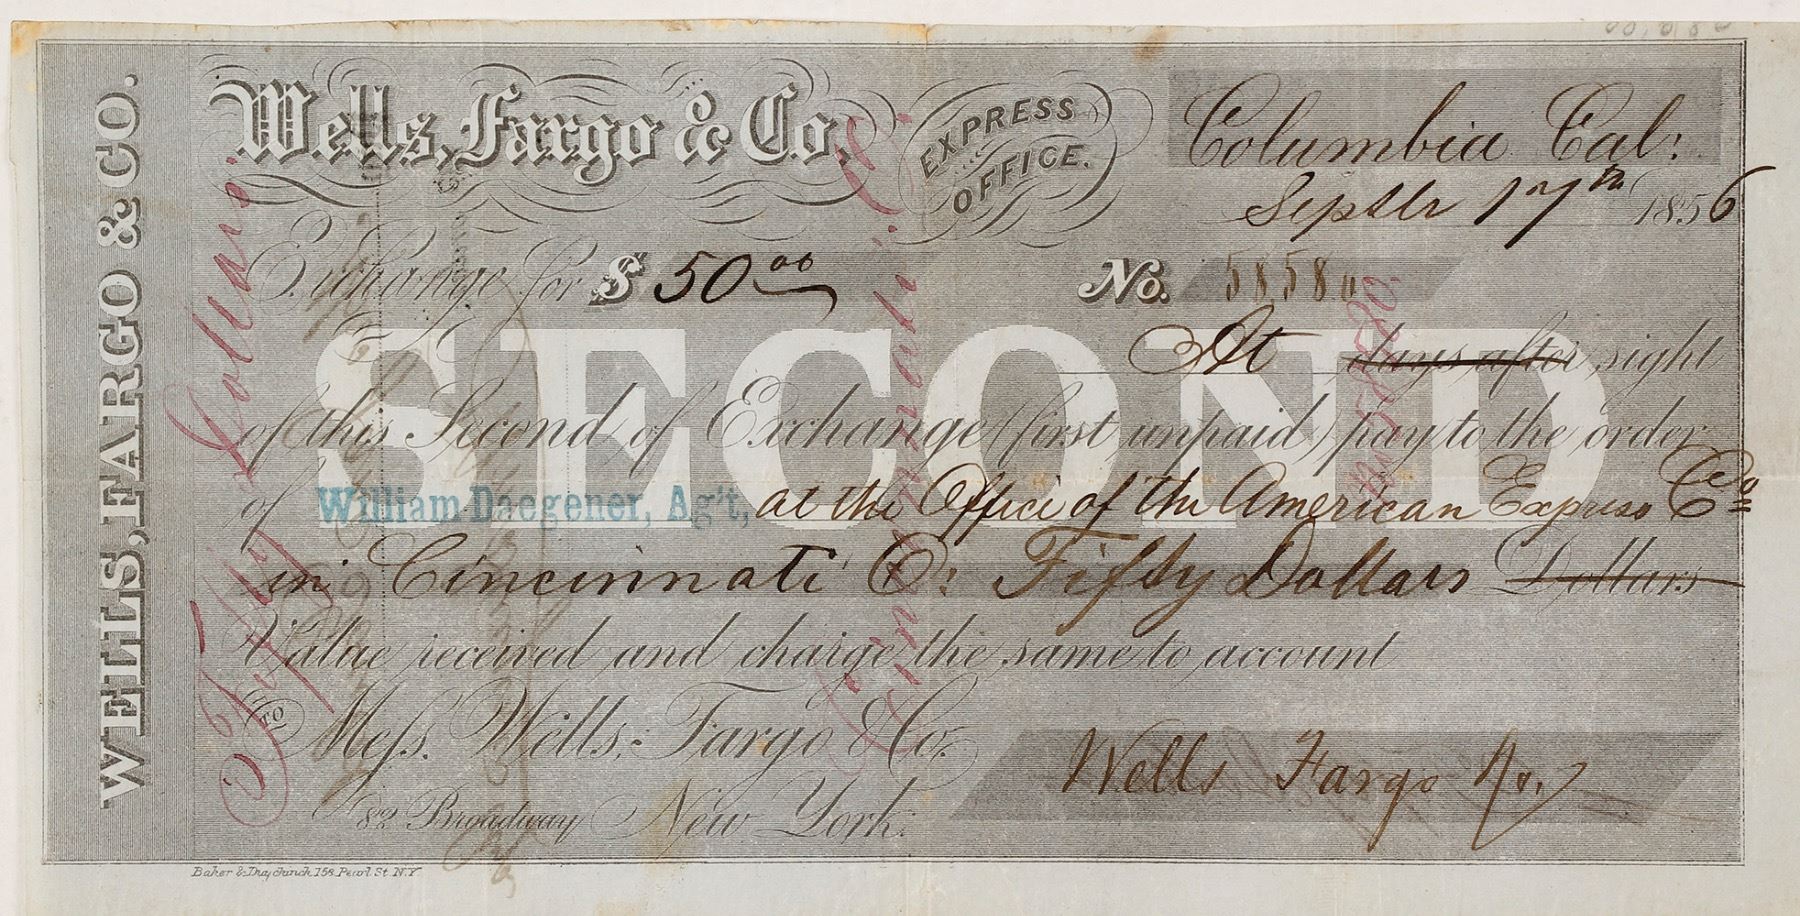 WELLS, FARGO & CO.
Wells, Fargo & Co.
EXPRESS
OFFICE.
Columbia Cal:
Septbr 17th 1856
Exchange for $ 50 00
No. 58580
SECOND
At days after sight
of this Second of Exchange (first unpaid) pay to the order
of William Daegener, Ag't, at the Office of the American Express Co
in Cincinnati O: Fifty Dollars Dollars
Value received and charge the same to account
To Mess. Wells, Fargo & Co.
82 Broadway New York.
Wells Fargo &Co.
Fifty Dollars.
Cincinnati
No 58580.
Baker & Duyckinck 158 Pearl St. N.Y.